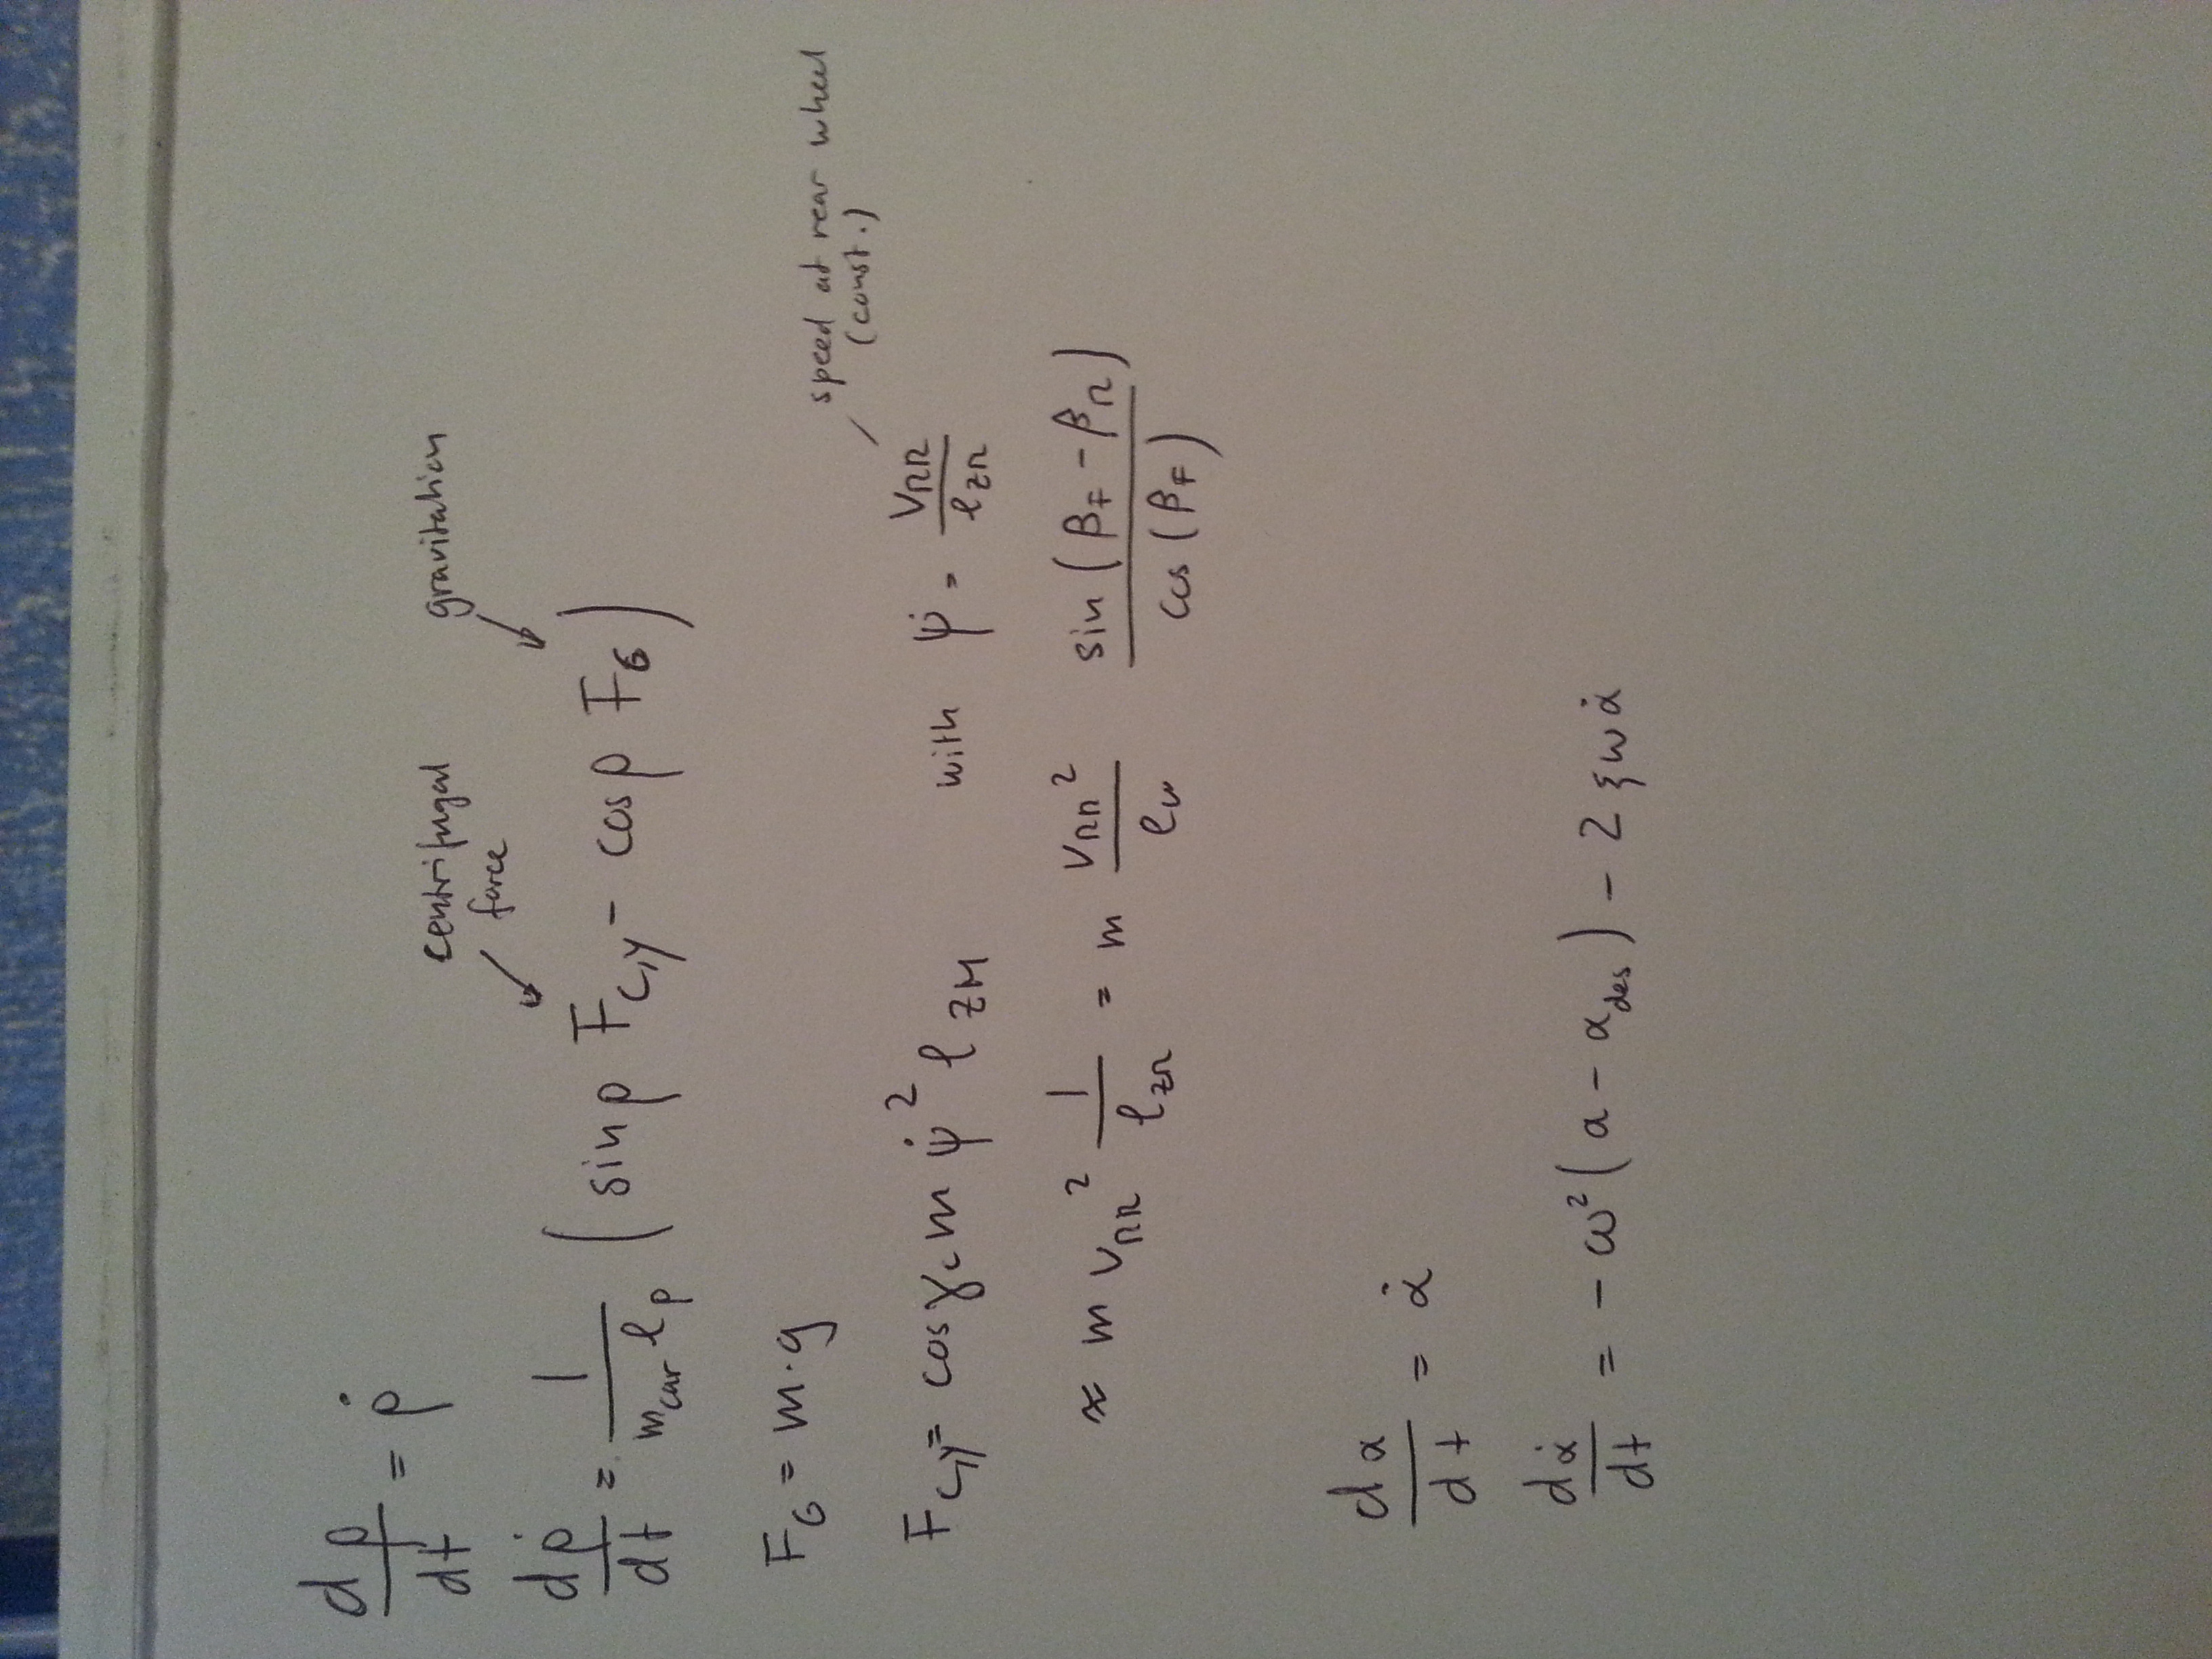 dρ/dt = ρ̇
centrifugal force
gravitation
dρ̇/dt = 1/(m_car ℓ_ρ) (sin ρ F_C,y - cos ρ F_G)
F_G = m·g
speed at rear wheel (const.)
F_C,y = cos γ_c m ψ̇² ℓ_ZM with ψ̇ = v_RR/ℓ_ZR
≈ m v_RR² 1/ℓ_ZR = m v_RR²/ℓ_w sin(β_F - β_R)/cos(β_F)
dα/dt = α̇
dα̇/dt = -ω²(α - α_des) - 2ξωα̇